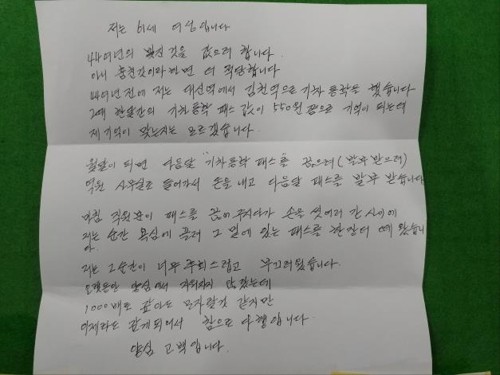 저는 61세 여성입니다
44여년의 빚진 것을 갚으려 합니다.
아니 훔친것이라 하면 더 적당합니다
44여년 전에 저는 대신역에서 김천역으로 기차 통학을 했습니다
그때 한달간의 기차통학 패스 값이 550원 쯤으로 기억이 되는데
제 기억이 맞는지는 모르겠습니다.
월말이 되면 다음달 "기차통학 패스를 끊으러(발부 받으러)
역원 사무실로 들어가서 돈을 내고 다음달 패스를 발부 받습니다
마침 직원분이 패스를 끊어주시다가 손을 씻으러 간 사이에
저는 순간 욕심에 끌려 그 옆에 있는 패스를 한장 더 떼 왔습니
다
저는 그 순간이 너무 후회스럽고 부끄러웠습니다.
오랫동안 양심에서 지워지지 않았는데
1000배로 갚아도 모자랄것 같지만
이제라도 갚게되어서 참으로 다행입니다.
양심 고백입니다.